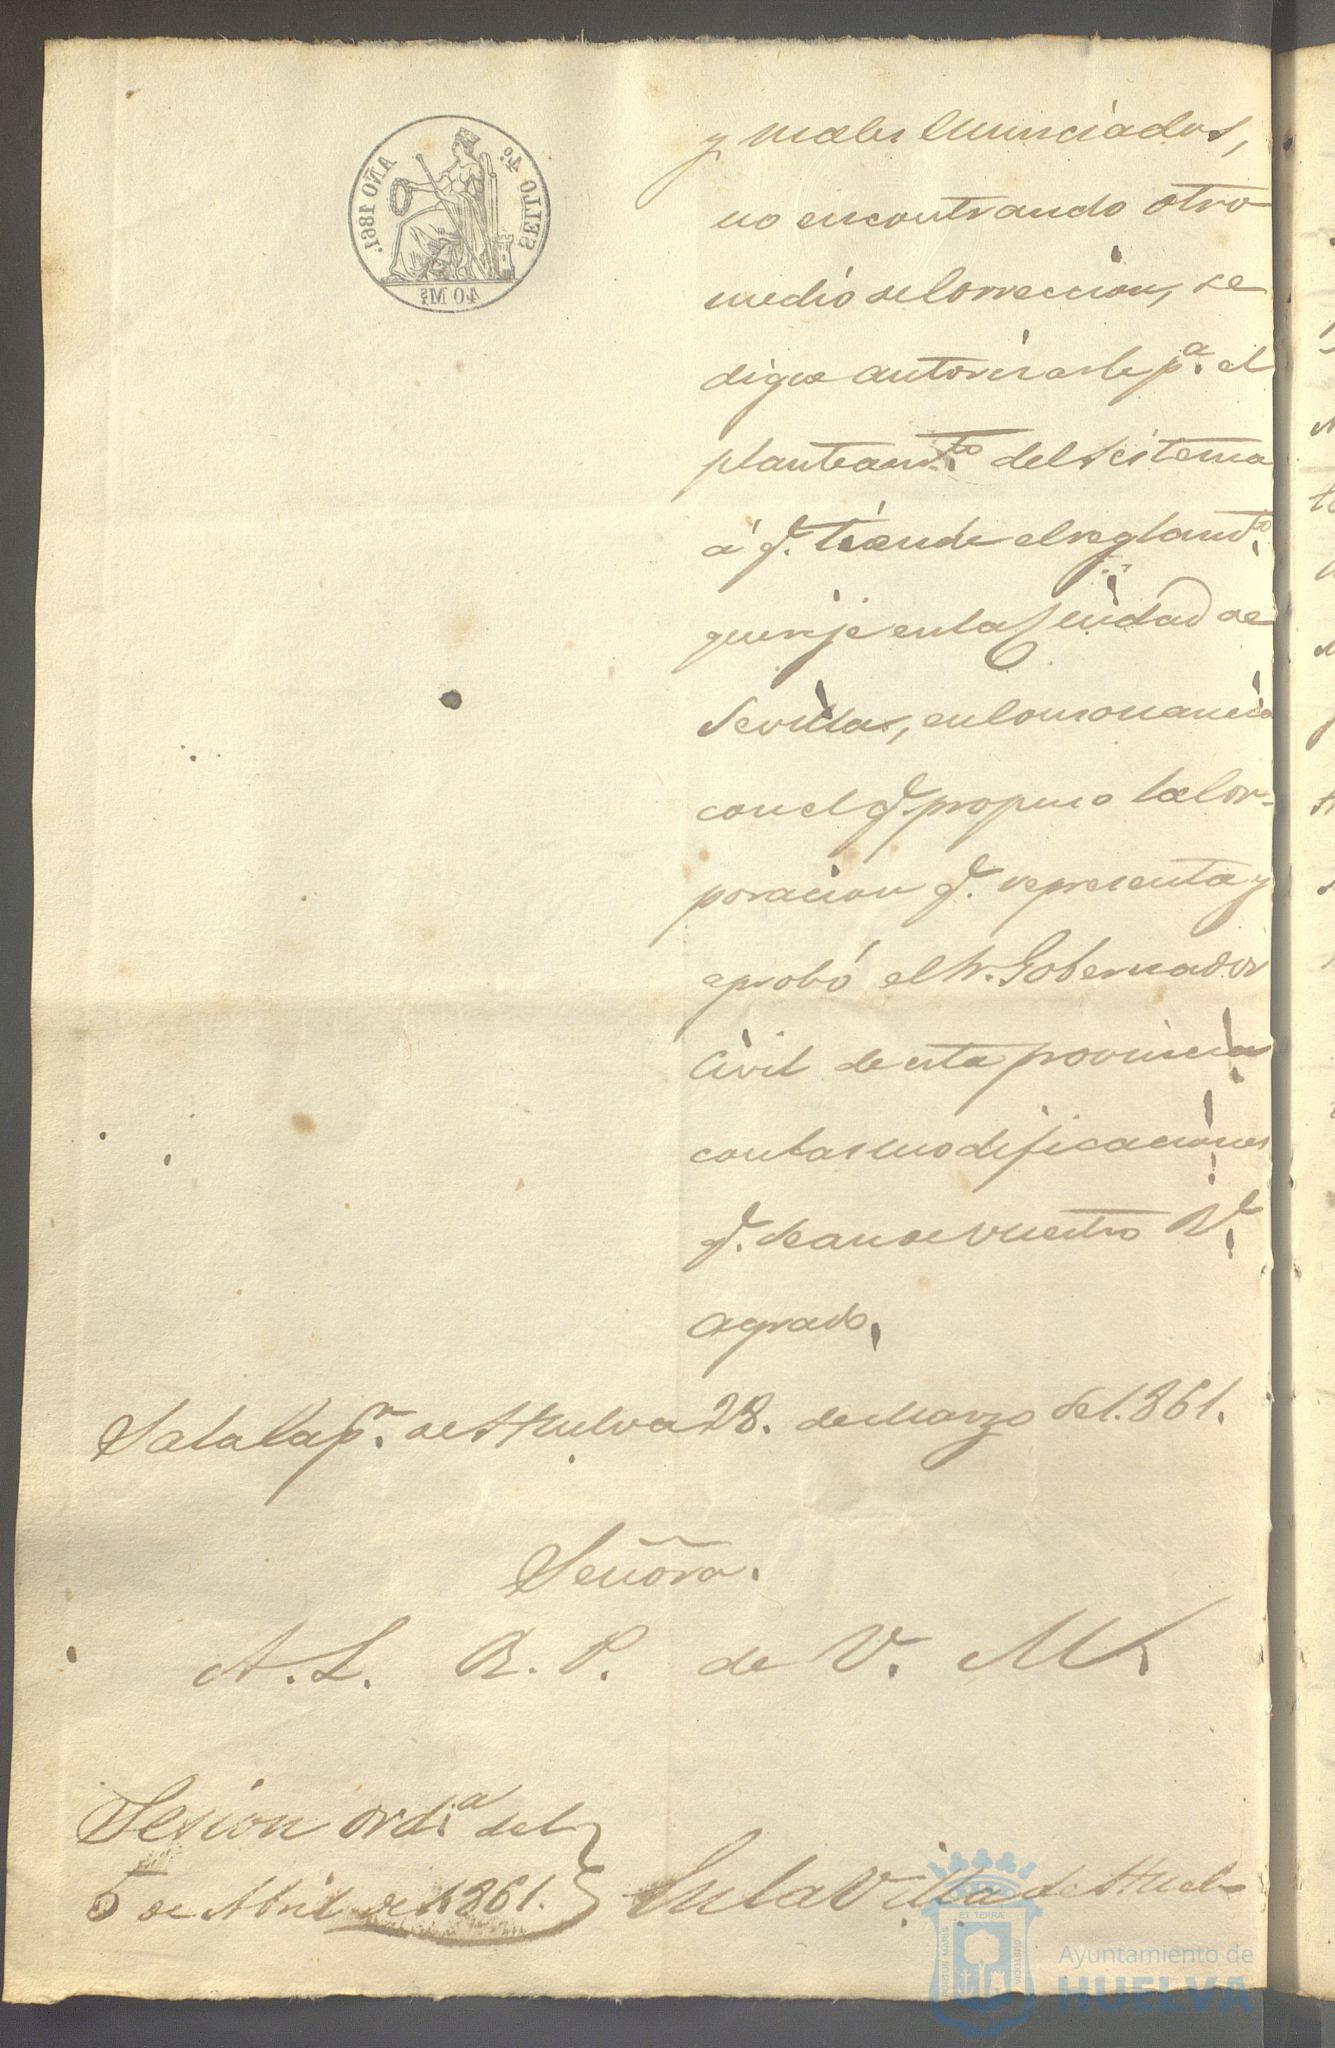 SELLO 4º
AÑO 1861.
40 Mˢ
y males enunciados,
no encontrando otro
medio de Correccion, se
digne autorisarle pª. el
planteamtº. del sistema
á q.e tiende el reglamtº.
que rije en la Ciudad de
Sevilla, en Consonancia
con el q.e propuso la Cor-
poracion q.e representa y
aprobó el Sr. Gobernador
Civil de esta provincia
con las modificaciones
q.e sean de vuestro R.l
agrado.
Sala Capr. de Huelva 28. de Marzo de 1.861.
Señora.
A. L. R. P. de V. M.
Sesion ordiª del
5 de Abril de 1861.
En la Villa de Huel-
Ayuntamiento de
HUELVA